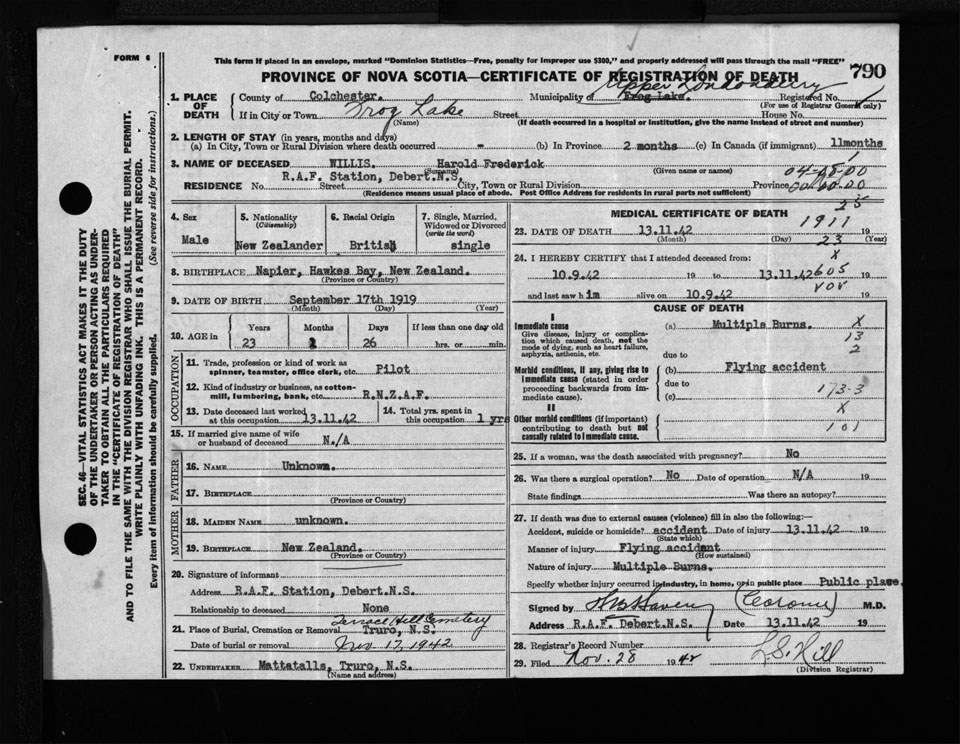 FORM 6
This form if placed in an envelope, marked "Dominion Statistics—Free, penalty for improper use $300," and properly addressed will pass through the mail "FREE"
PROVINCE OF NOVA SCOTIA—CERTIFICATE OF REGISTRATION OF DEATH
790
Upper Londonderry
1. PLACE OF DEATH
County of Colchester. Municipality of Frog Lake. Registered No.
(For use of Registrar General only)
If in City or Town Frog Lake Street House No.
(Name) (If death occurred in a hospital or institution, give the name instead of street and number)
2. LENGTH OF STAY (in years, months and days)
(a) In City, Town or Rural Division where death occurred - (b) In Province 2 months (c) In Canada (if immigrant) 11months
3. NAME OF DECEASED WILLIS. Harold Frederick
(Surname) (Given name or names)
R.A.F. Station, Debert.N.S.
RESIDENCE No. Street City, Town or Rural Division Province
(Residence means usual place of abode. Post Office Address for residents in rural parts not sufficient)
4. Sex
Male
5. Nationality
(Citizenship)
New Zealander
6. Racial Origin
British
7. Single, Married, Widowed or Divorced
(write the word)
single
8. BIRTHPLACE Napier, Hawkes Bay, New Zealand.
(Province or Country)
9. DATE OF BIRTH September 17th 1919
(Month) (Day) (Year)
10. AGE in
Years Months Days If less than one day old
23 26 hrs. or min.
OCCUPATION
11. Trade, profession or kind of work as
spinner, teamster, office clerk, etc. Pilot
12. Kind of industry or business, as cotton-
mill, lumbering, bank, etc. R.N.Z.A.F.
13. Date deceased last worked
at this occupation 13.11.42
14. Total yrs. spent in
this occupation 1 yrs
15. If married give name of wife
or husband of deceased N./A
FATHER
16. NAME Unknown.
17. BIRTHPLACE
(Province or Country)
MOTHER
18. MAIDEN NAME unknown.
19. BIRTHPLACE New Zealand.
(Province or Country)
20. Signature of informant
Address R.A.F. Station, Debert.N.S.
Relationship to deceased None
Terrace Hill Cemetery
21. Place of Burial, Cremation or Removal Truro, N.S.
Date of burial or removal Nov. 17, 1942
22. UNDERTAKER Mattatalls, Truro, N.S.
(Name and address)
MEDICAL CERTIFICATE OF DEATH
25
1911
23. DATE OF DEATH 13.11.42 19
(Month) (Day) 23 (Year)
24. I HEREBY CERTIFY that I attended deceased from: X
10.9.42 19 to 13.11.42 605 19
and last saw him alive on 10.9.42 19
CAUSE OF DEATH
I
Immediate cause
Give disease, injury or complication which caused death, not the mode of dying, such as heart failure, asphyxia, asthenia, etc.
(a) Multiple Burns. X
13
2
due to
Morbid conditions, if any, giving rise to immediate cause (stated in order proceeding backwards from immediate cause).
(b) Flying accident
due to
(c) 173-3
II
X
Other morbid conditions (if important) contributing to death but not causally related to immediate cause.
101
25. If a woman, was the death associated with pregnancy? No
26. Was there a surgical operation? No Date of operation N/A
State findings Was there an autopsy?
27. If death was due to external causes (violence) fill in also the following:
Accident, suicide or homicide? accident Date of injury 13.11.42 19
(State which)
Manner of injury Flying accident
(How sustained)
Nature of injury Multiple Burns.
Specify whether injury occurred in industry, in home, or in public place Public place.
Signed by (Coroner) M.D.
Address R.A.F. Debert.N.S. Date 13.11.42 19
28. Registrar's Record Number
29. Filed Nov. 28 1942 L.S. Hill
(Division Registrar)
SEC. 46—VITAL STATISTICS ACT MAKES IT THE DUTY
OF THE UNDERTAKER OR PERSON ACTING AS UNDER-
TAKER TO OBTAIN ALL THE PARTICULARS REQUIRED
IN THE "CERTIFICATE OF REGISTRATION OF DEATH"
AND TO FILE THE SAME WITH THE DIVISION REGISTRAR WHO SHALL ISSUE THE BURIAL PERMIT.
WRITE PLAINLY WITH UNFADING INK. THIS IS A PERMANENT RECORD.
Every item of information should be carefully supplied. (See reverse side for instructions.)